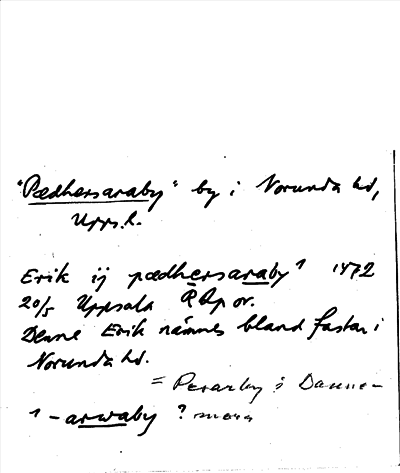 "Pædhersaraby" by i Norunda hd,
Upps.l.
Erik ij pædhersaraby¹ 1472
20/5 Uppsala RAp or.
Denne Erik nämnes bland fastar i
Norunda hd.
= Perarby i
¹ -arwaby ?